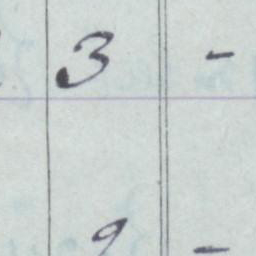 3 -
9 -